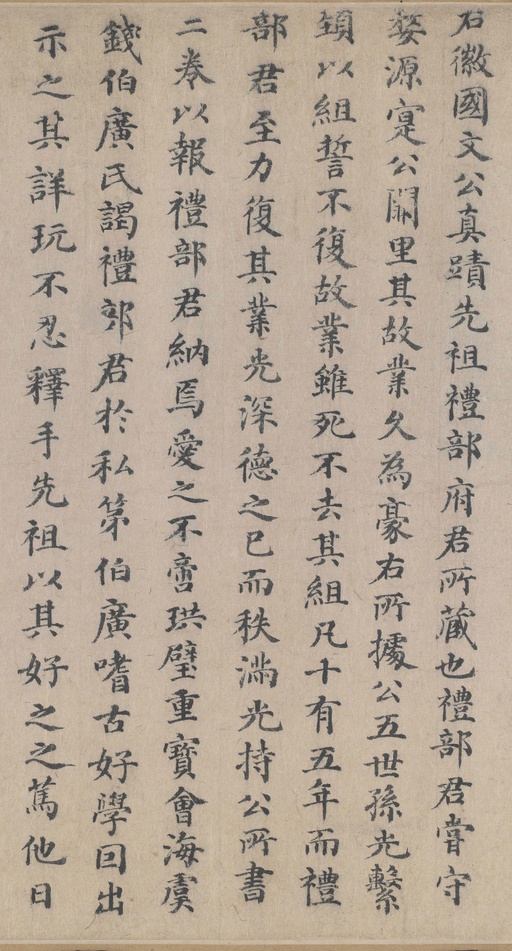 右徽國文公真蹟先祖禮部府君所藏也禮部君嘗守
婺源寔公闕里其故業久為豪右所據公五世孫光繫
頸以組誓不復故業雖死不去其組凡十有五年而禮
部君至力復其業光深德之已而秩滿光持公所書
二卷以報禮部君納焉愛之不啻珙璧重寶會海虞
錢伯廣氏謁禮部君於私第伯廣嗜古好學因出
示之其詳玩不忍釋手先祖以其好之之篤他日